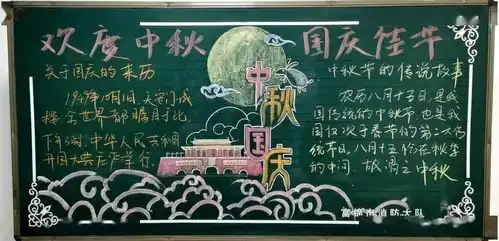 欢度中秋 国庆佳节
关于国庆的来历
1949年10月1日,天安门城
楼,全世界都瞩目于此,
下午3时,中华人民共和国
开国大典庄严举行。
中秋国庆
中秋节的传说故事
农历八月十五日,是我
国传统的中秋节,也是我
国仅次于春节的第二大传
统节日,八月十五恰在秋季
的中间,故谓之中秋
富锦市消防大队